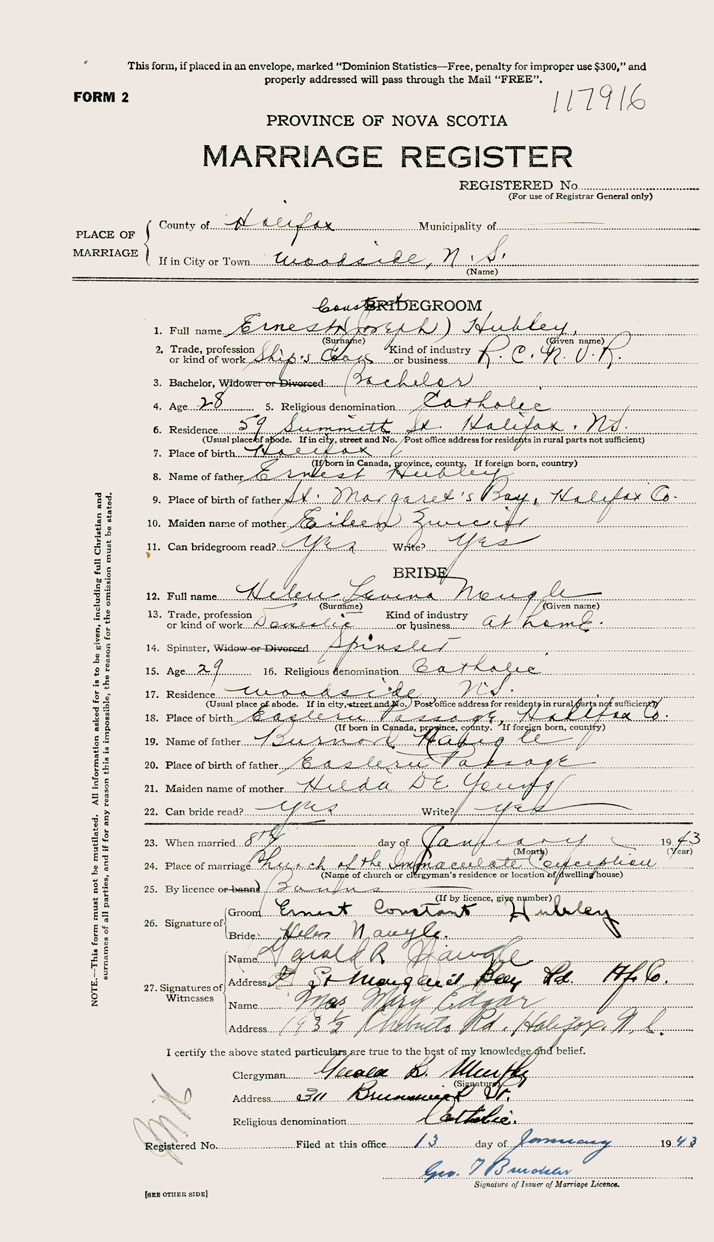 This form, if placed in an envelope, marked "Dominion Statistics—Free, penalty for improper use $300," and
properly addressed will pass through the Mail "FREE".
FORM 2
117916
PROVINCE OF NOVA SCOTIA
MARRIAGE REGISTER
REGISTERED No.
(For use of Registrar General only)
PLACE OF MARRIAGE
County of Halifax Municipality of
If in City or Town Woodside, N. S.
(Name)
Constant
BRIDEGROOM
1. Full name Ernest (Joseph) Hubley,
(Surname) (Given name)
2. Trade, profession or kind of work Ship's Cook Kind of industry or business R. C. N. V. R.
3. Bachelor, Widower or Divorced Bachelor
4. Age 28 5. Religious denomination Catholic
6. Residence 59 Summitt St. Halifax. N.S.
(Usual place of abode. If in city, street and No. Post office address for residents in rural parts not sufficient)
7. Place of birth Halifax
(If born in Canada, province, county. If foreign born, country)
8. Name of father Ernest Hubley
9. Place of birth of father St. Margaret's Bay, Halifax Co.
10. Maiden name of mother Eileen
11. Can bridegroom read? Yes Write? Yes
BRIDE
12. Full name Helen Naugle
(Surname) (Given name)
13. Trade, profession or kind of work Domestic Kind of industry or business at home.
14. Spinster, Widow or Divorced Spinster
15. Age 29 16. Religious denomination Catholic
17. Residence Woodside N.S.
(Usual place of abode. If in city, street and No. Post office address for residents in rural parts not sufficient)
18. Place of birth Eastern Passage, Halifax Co.
(If born in Canada, province, county. If foreign born, country)
19. Name of father Naugle
20. Place of birth of father Eastern Passage
21. Maiden name of mother Hilda DE Young
22. Can bride read? Yes Write? Yes
23. When married 8th day of January 1943
(Month) (Year)
24. Place of marriage Church of the Immaculate Conception
(Name of church or clergyman's residence or location of dwelling house)
25. By licence or banns Banns
(If by licence, give number)
26. Signature of
Groom Ernest Constant Hubley
Bride Helen Naugle.
27. Signatures of Witnesses
Name Gerald R Naugle
Address St Margaret's Bay Rd. Hfx Co.
Name Mrs Mary Edgar
Address 193½ Chebucto Rd., Halifax, N.S.
I certify the above stated particulars are true to the best of my knowledge and belief.
Clergyman Gerald B. Murphy
(Signature)
Address Brunswick St.
Religious denomination Catholic.
Registered No. Filed at this office 13 day of January 1943
Geo.
Signature of Issuer of Marriage Licence.
[SEE OTHER SIDE]
NOTE.—This form must not be mutilated. All information asked for is to be given, including full Christian and
surnames of all parties, and if for any reason this is impossible, the reason for the omission must be stated.